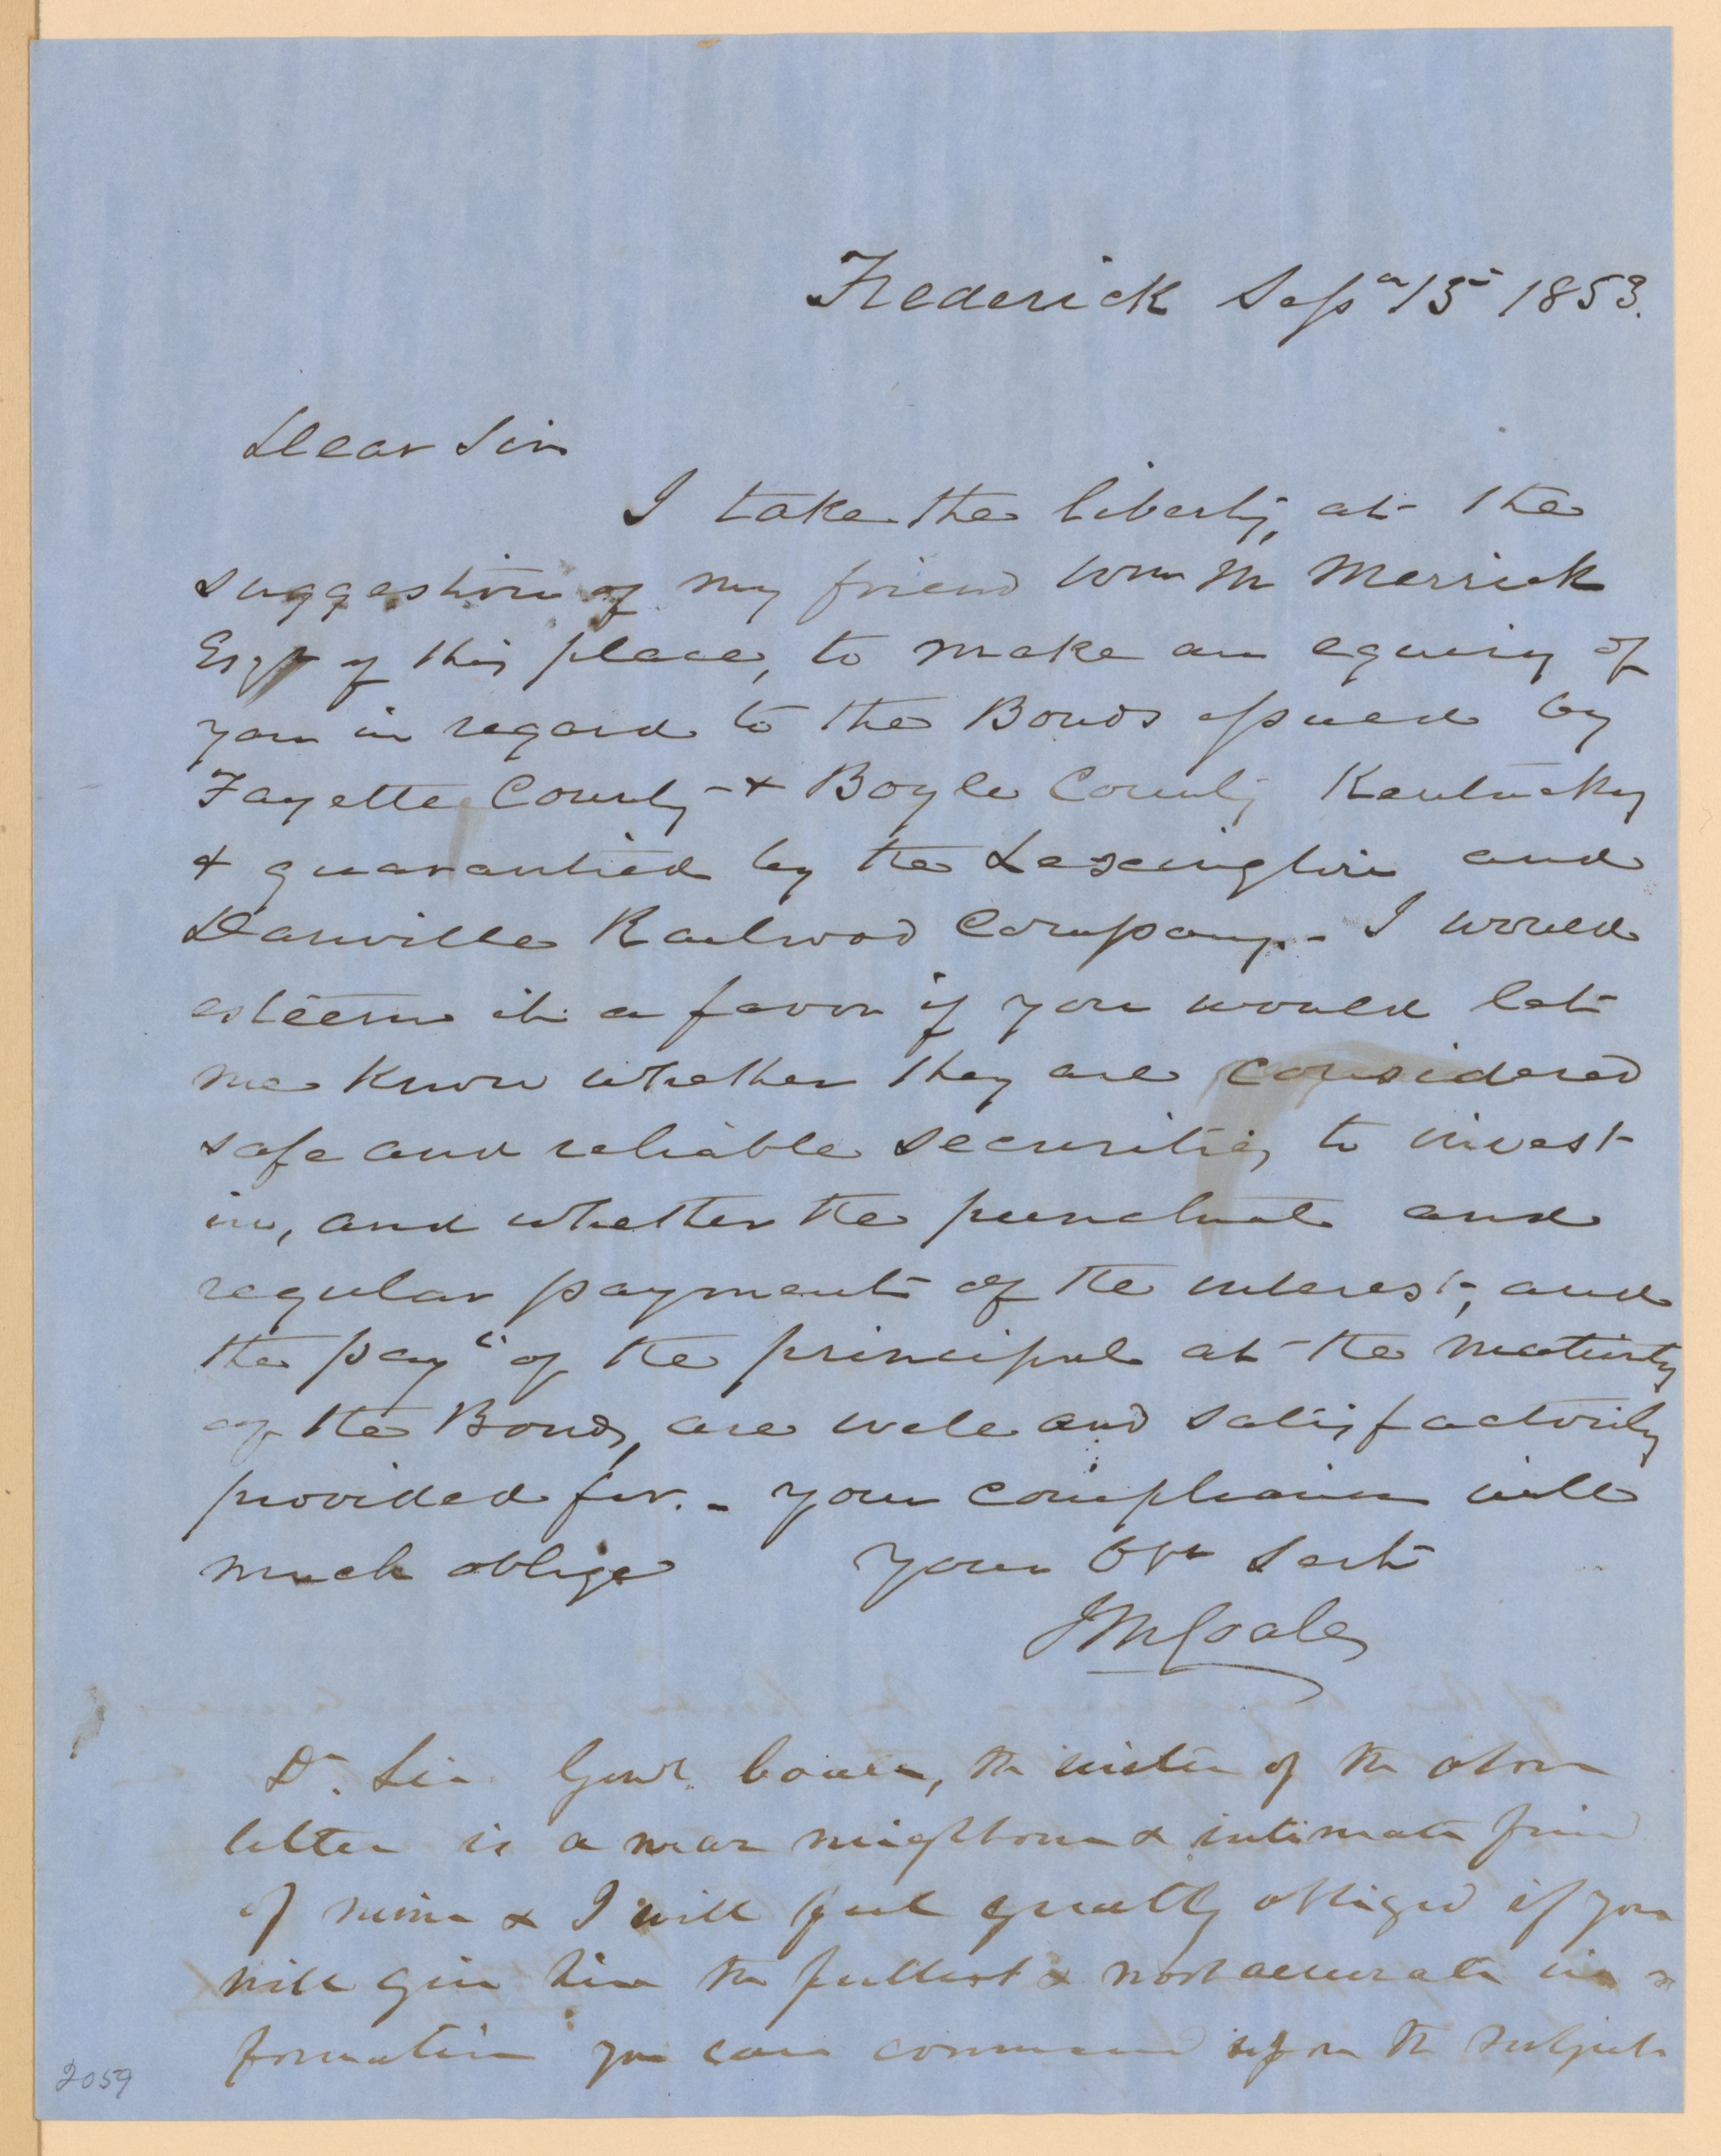 Frederick Sepr 15 1853.
Dear Sir
I take the liberty, at the
suggestion of my friend Wm M Merrick
Esqr of this place, to make an equiry of
you in regard to the Bonds issued by
Fayette County & Boyle County Kentucky
& guarantied by the Lexington and
Danville Railroad Company. - I would
esteem it a favor if you would let
me know whether they are considered
safe and reliable securities to invest
in, and whether the punctual and
regular payment of the interest, and
the payt of the principal at the maturity
of the Bonds, are well and satisfactorily
provided for. - Your compliance will
much oblige Your Obt Servt
J M Coale
Dr. Sir Genl. Coale, the writer of the above
letter is a near neighbour & intimate friend
of mine & I will feel greatly obliged if you
will give him the fullest & most accurate in
formation you can command upon the subject
2059